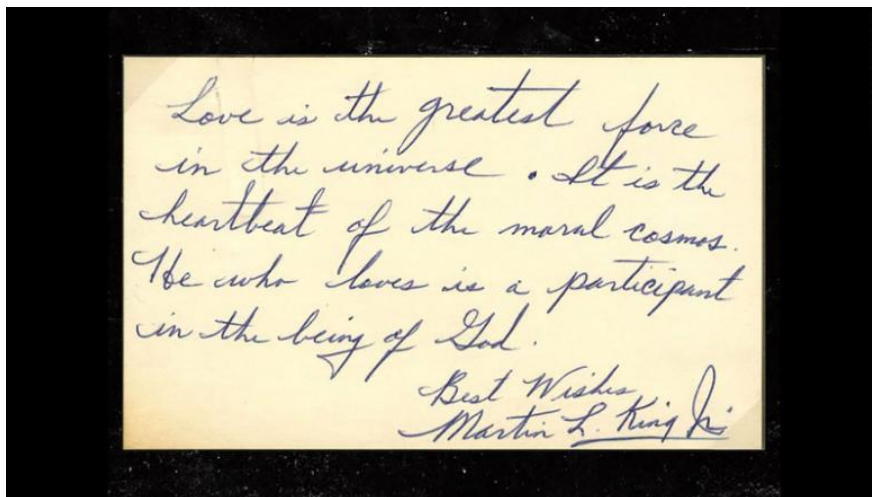 Love is the greatest force
in the universe. It is the
heartbeat of the moral cosmos.
He who loves is a participant
in the being of God.
Best Wishes,
Martin L. King Jr.